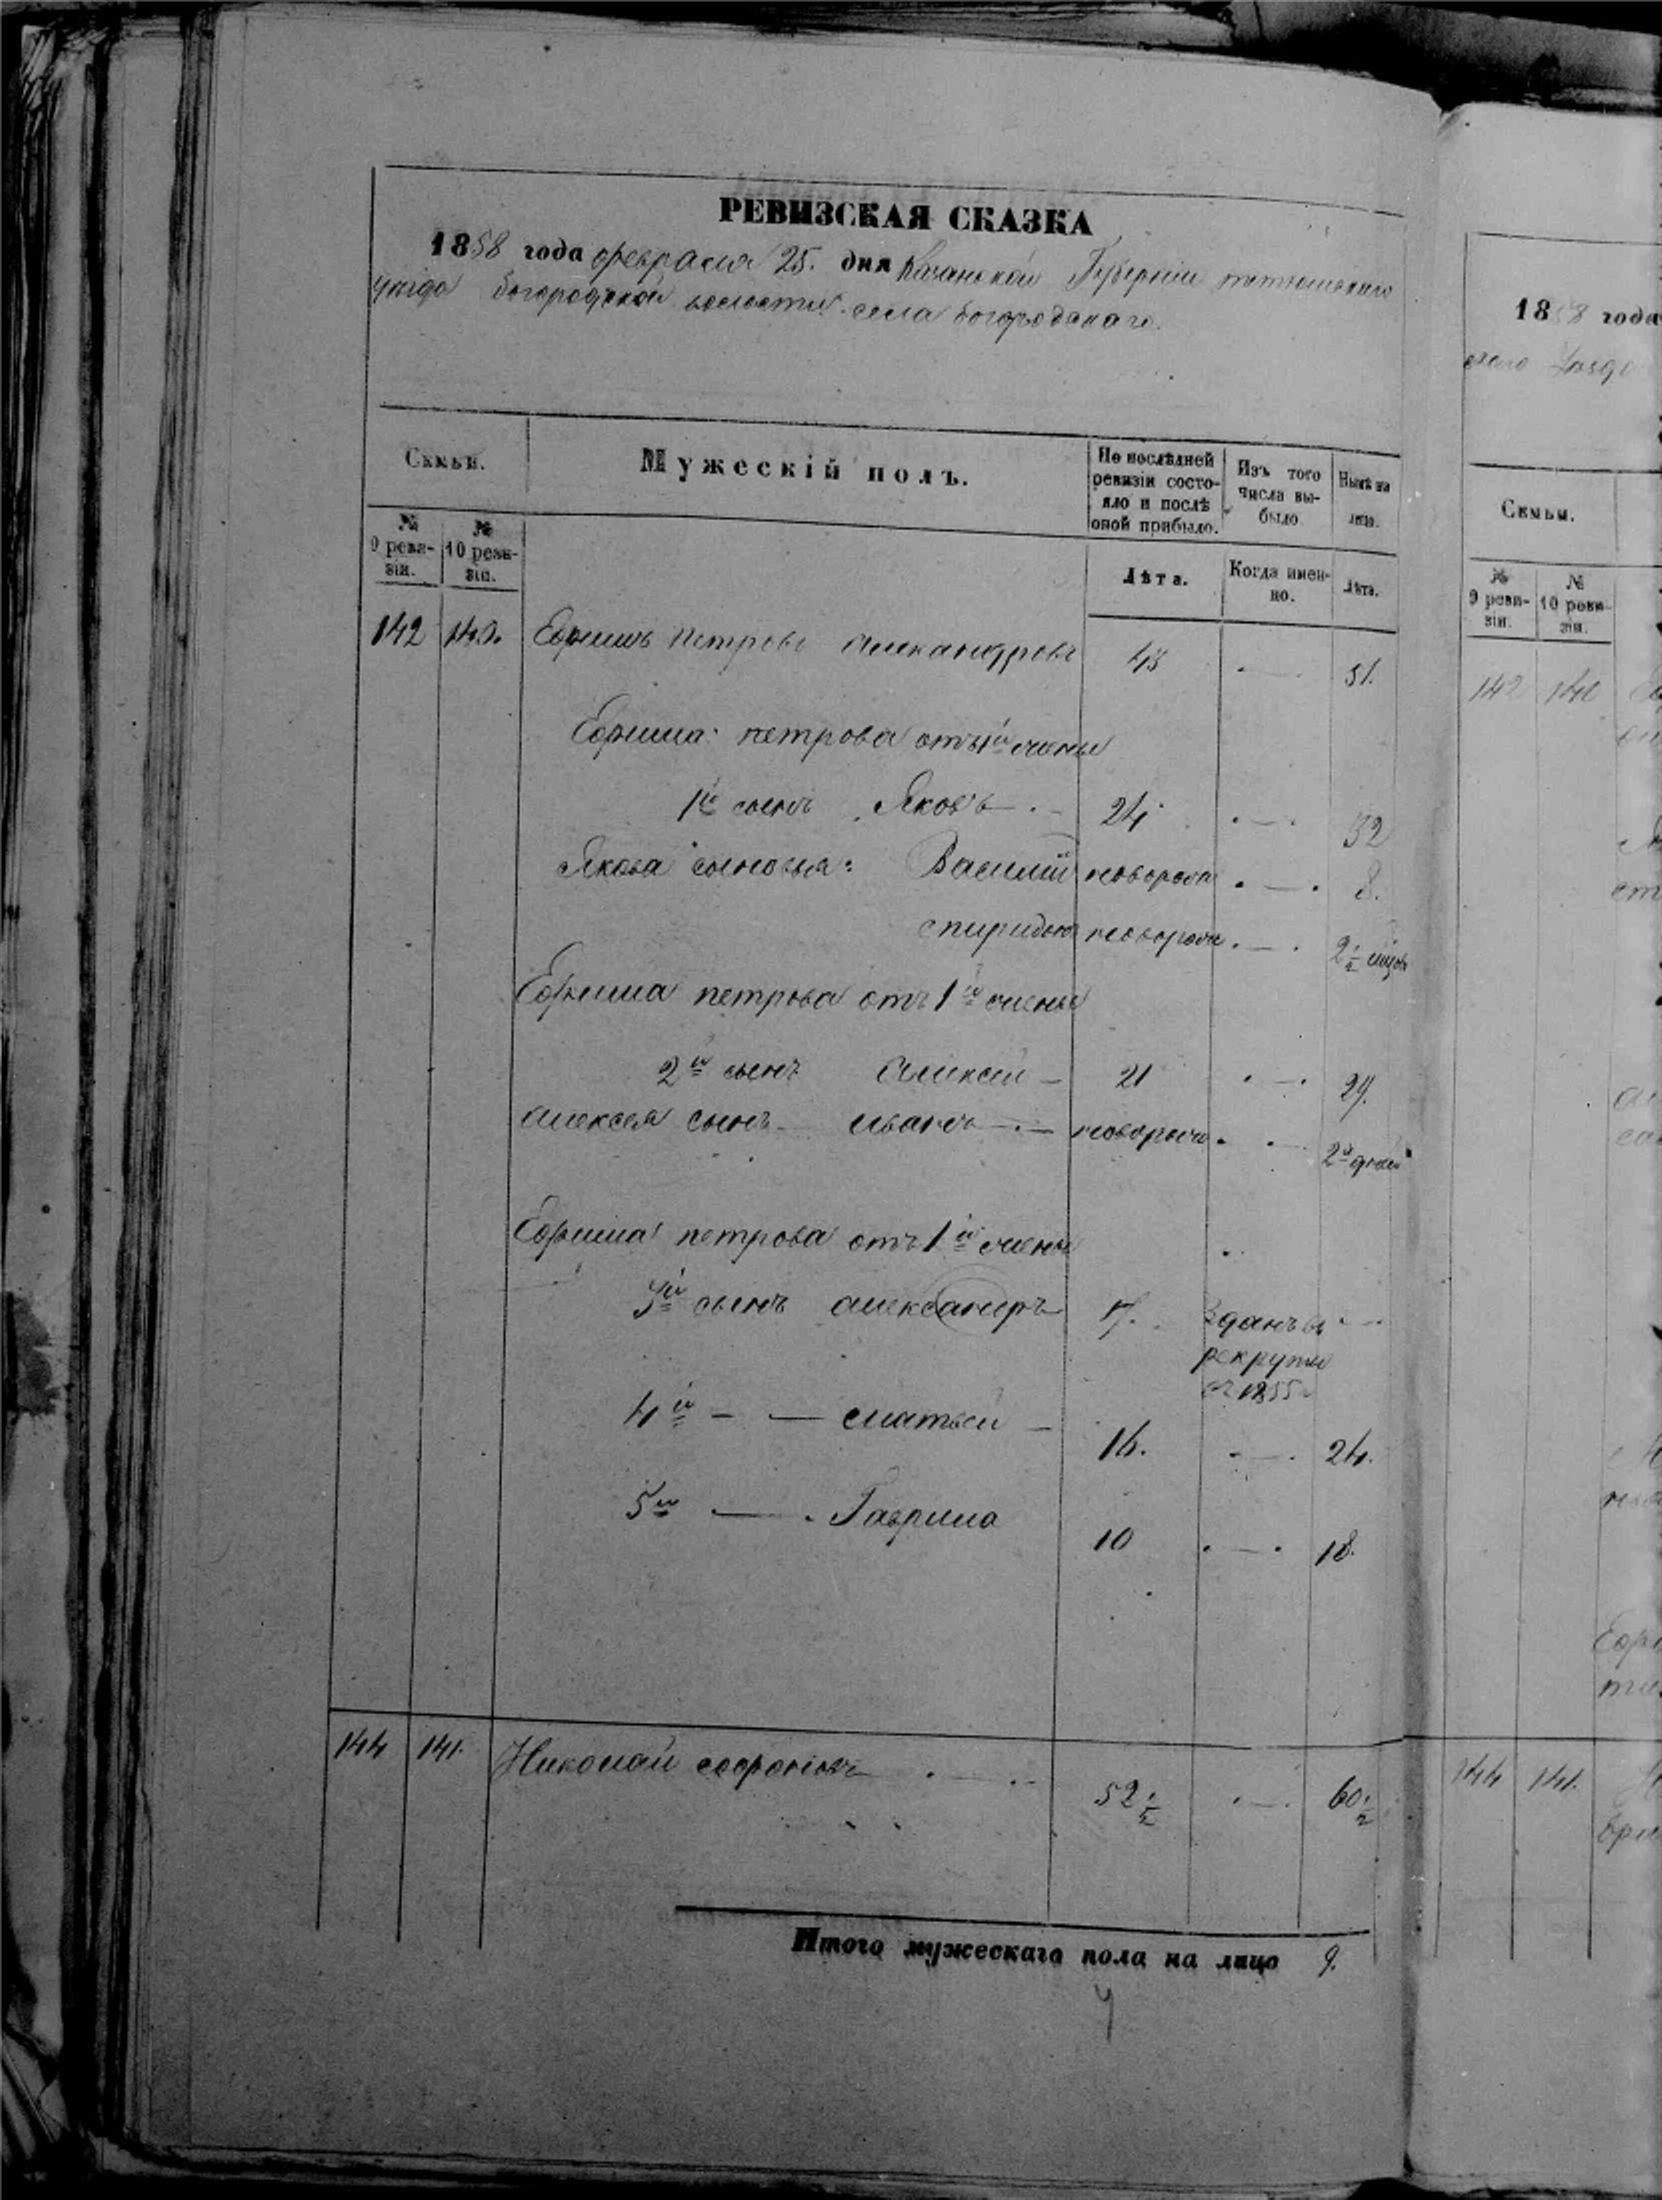 РЕВИЗСКАЯ СКАЗКА
1858 года февраля 25. дня Казанской Губернии тетюшскаго
уѣзда богородской волости села богородскаго.
Семьи.
Мужескій полъ.
По послѣдней ревизіи состояло и послѣ оной прибыло.
Изъ того числа выбыло.
Нынѣ на лицо.
№ 9 ревизіи.
№ 10 ревизіи.
Лѣта.
Когда именно.
Лѣта.
142 140. Ефимъ Петровъ Александровъ 43 51.
Ефима петрова отъ 1й жены
1й сынъ Яковъ 24 32
Якова сыновья: Василій новорожд 8.
спиридонъ новорожд 2 1/2
Ефима петрова отъ 1й жены
2й сынъ Алексѣй 21 29.
Алексея сынъ Иванъ новорожд 2
Ефима петрова отъ 1й жены
3й сынъ александръ 17. Зданъ въ
рекруты
въ 1855г
4й матвей 16. 24.
5й Гаврила 10 18.
144 141. Николай софроновъ 52 1/2 60 1/2
Итого мужескаго пола на лицо 9.
1858 года
Семьи.
№ 9 ревизіи.
№ 10 ревизіи.
142 140
144 141.